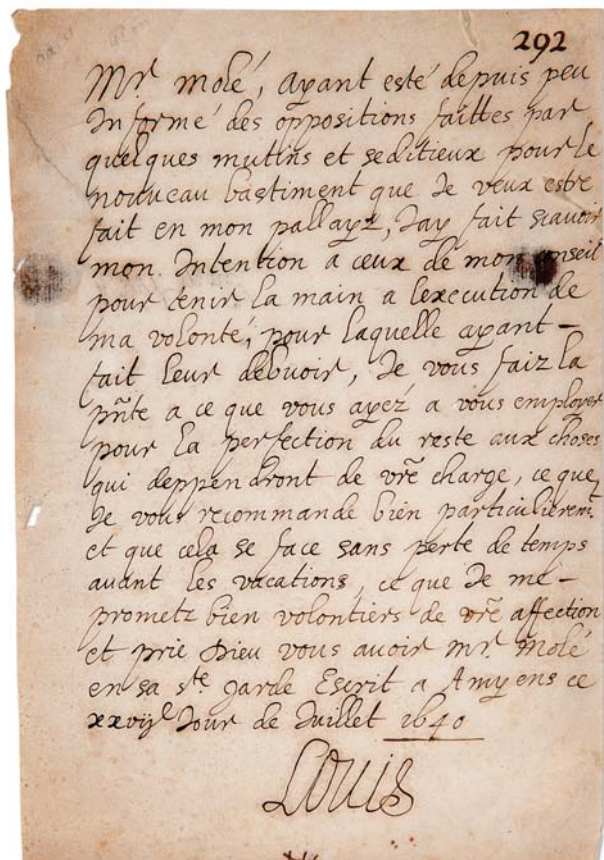 292
Mr. Molé, ayant esté depuis peu
Informé des oppositions faittes par
quelques mutins et seditieux pour le
nouveau bastiment que Je veux estre
fait en mon pallayz, Jay fait scavoir
mon Intention a ceux de mon conseil
pour tenir la main a lexecution de
ma volonté, pour laquelle ayant –
fait leur debuoir, Je vous faiz la
pñte a ce que vous ayez a vous employer
pour la perfection du reste aux choses
qui deppendront de vr̃e charge, ce que
Je vous recommande bien particulieremt.
et que cela se face sans perte de temps
auant les vacations, ce que Je me –
prometz bien volontiers de vr̃e affection
et prie Dieu vous auoir mr. Molé
en sa ste. garde Escrit a Amyens ce
xxvije Jour de Juillet 1640
Louis